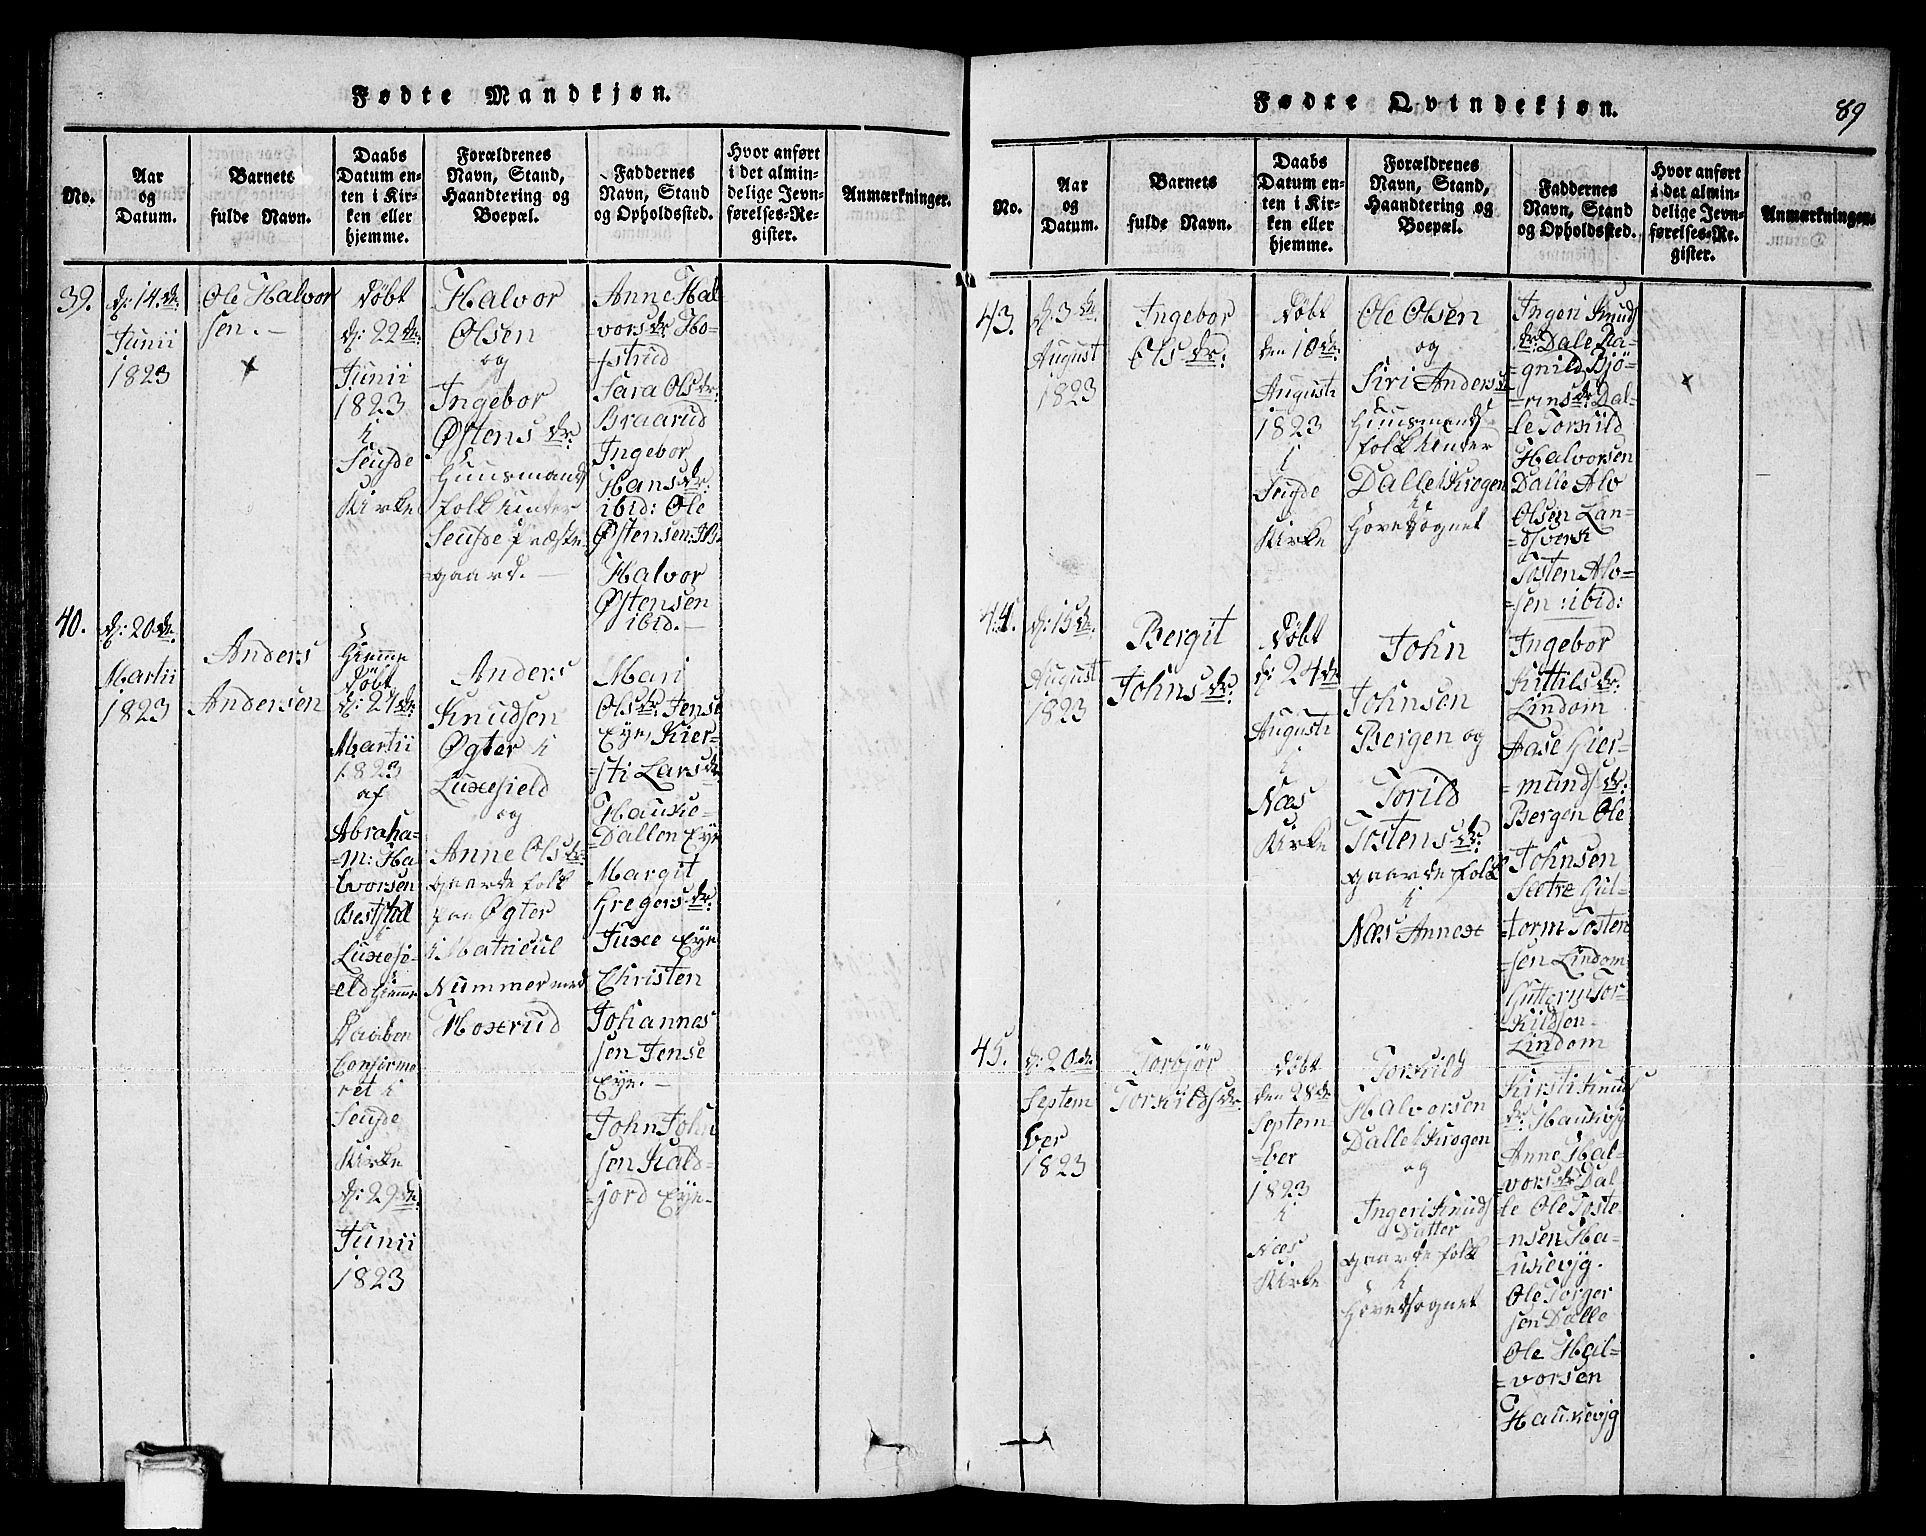 Fødte Mandkjøn.
No.
Aar
og
Datum.
Barnets
fulde Navn.
Daabs
Datum en-
ten i Kir-
ken eller
hjemme.
Forældrenes
Navn, Stand,
Haandtering og
Boepæl.
Faddernes
Navn, Stand
og Opholdssted.
Hvor anført
i det almin-
delige Jevn-
førelses-Re-
gister.
Anmærkninger.
39.
d: 14de
Junii
1823
Ole Halvor
sen.
Døbt
d: 22de
Junii
1823
i
Seufde
Kirke
Halvor
Olsen
og
Ingebor
Østens dr:
Huusmands
folk under
Seufde Præste
gaard.
Anne Hal
vorsdr Ho-
fstrud
Sara Olsdr:
Braarud
Ingebor
Hansdr:
ibid: Ole
Østensen:
Halvor
Østensen
ibid.
40.
d: 20de
Martii
1823
Anders
Andersen
Hiemme
Døbt
d: 21de
Martii
1823
af
Abraha-
=m: Ha
lvorsen
Bestftul
i
Luxefi-
=eld hiemme
Daaben
Confirme
ret i
Seufde
Kirke
d: 29de
Junii
1823
Anders
Knudsen
Øgter i
Luxefield
og
Anne Olsdr:
gaardefolk
paa Øgter
i Matricul
Nummer med
Moxerud
Mari
Olsdr: Jense
Eye, Kier-
=sti Larsdr
Hauke-
=Dallen Eye
Margit
Gregersdr:
Juxe Eye
Christen
Johannes
sen Jense
Eye.
John John
sen Kald-
=jord Eye.
Fødte Qvindekjøn.
89
No.
Aar
og
Datum.
Barnets
fulde Navn.
Daabs
Datum en-
ten i Kir-
ken eller
hjemme.
Forældrenes
Navn, Stand,
Haandtering og
Boepæl.
Faddernes
Navn, Stand
og Opholdssted.
Hvor anført
i det almin-
delige Jevn-
førelses-Re-
gister.
Anmærkninger.
43.
d. 3de
August
1823
Ingebor
Ols dr:
Døbt
den 10de
Augusti
1823
i
Seufde
Kirke
Ole Olsen
og
Siri Andersd
Huusmands
folk under
Dallelskrogen
i
Hovedsognet
Ingeri Knuds
dr: Dale Ra-
=gnild Bjø-
=rnsdr: Dal-
le Torkild
Halvorsen
Dalle Alv
Olsen Lan-
=dsverk
Tosten Alv-
=sen: ibid:
44.
d: 15de
August
1823
Bergit
Johns dr:
Døbt
d: 24de
Augusti
i
Næs
Kirke
John
Johnsen
Bergen og
Torild
Tostensdr:
gaardefolk
i
Næs Annext
Ingebor
Kittilsdr:
Lindom
Aase Gier-
=mundsdr:
Bergen Ole
Johnsen
Sætre Gul-
=torm Tosten
=sen Lindom
Guttorm Tor-
=kildsen
Lindom
45.
d: 20de
Septem
ber
1823
Torbjør
Torkildsdr.
Døbt
den 28de
Septem
=ber
1823
i
Næs
Kirke
Torkild
Halvorsen
Dallelskrogen
og
Ingeri Knuds
Datter
gaardefolk
i
Hovedsognet
Kirsti Knuds
dr: Haukevjg
Anne Hal-
vorsdr Dal
le Ole Toste
=nsen Ha-
=ukevjg.
Ole Torger
sen Dalle
Ole Hal-
=vorsen
Haukevjg